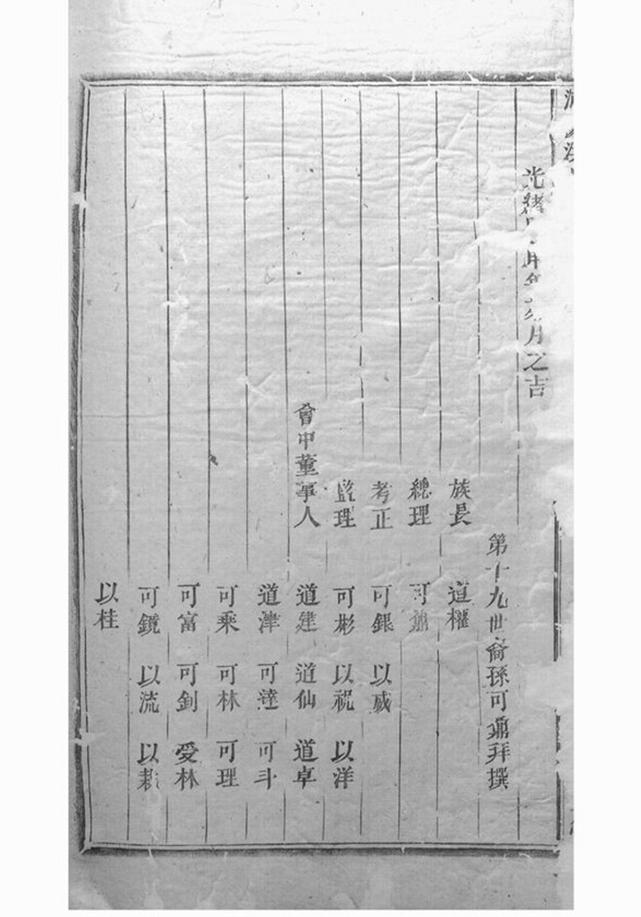 光緒年月之吉
第十九世裔孫可鼐拜撰
族長 道權
總理 可鼐
考正 可銀 以威
監理 可彬 以祝 以洋
會中董事人 道建 道仙 道卓
道津 可達 可斗
可乘 可林 可理
可富 可釗 愛林
可鏡 以流 以栽
以桂